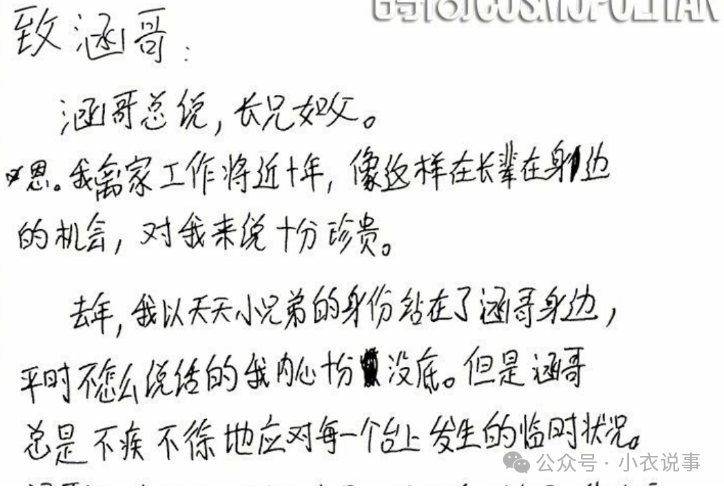 时尚COSMOPOLITAN
致涵哥:
涵哥总说,长兄如父。
恩。我离家工作将近十年,像这样在长辈在身边
的机会,对我来说十分珍贵。
去年,我以天天小兄弟的身份站在了涵哥身边,
平时不怎么说话的我内心十分没底。但是涵哥
总是不疾不徐地应对每一个台上发生的临时状况。
公众号·小衣说事